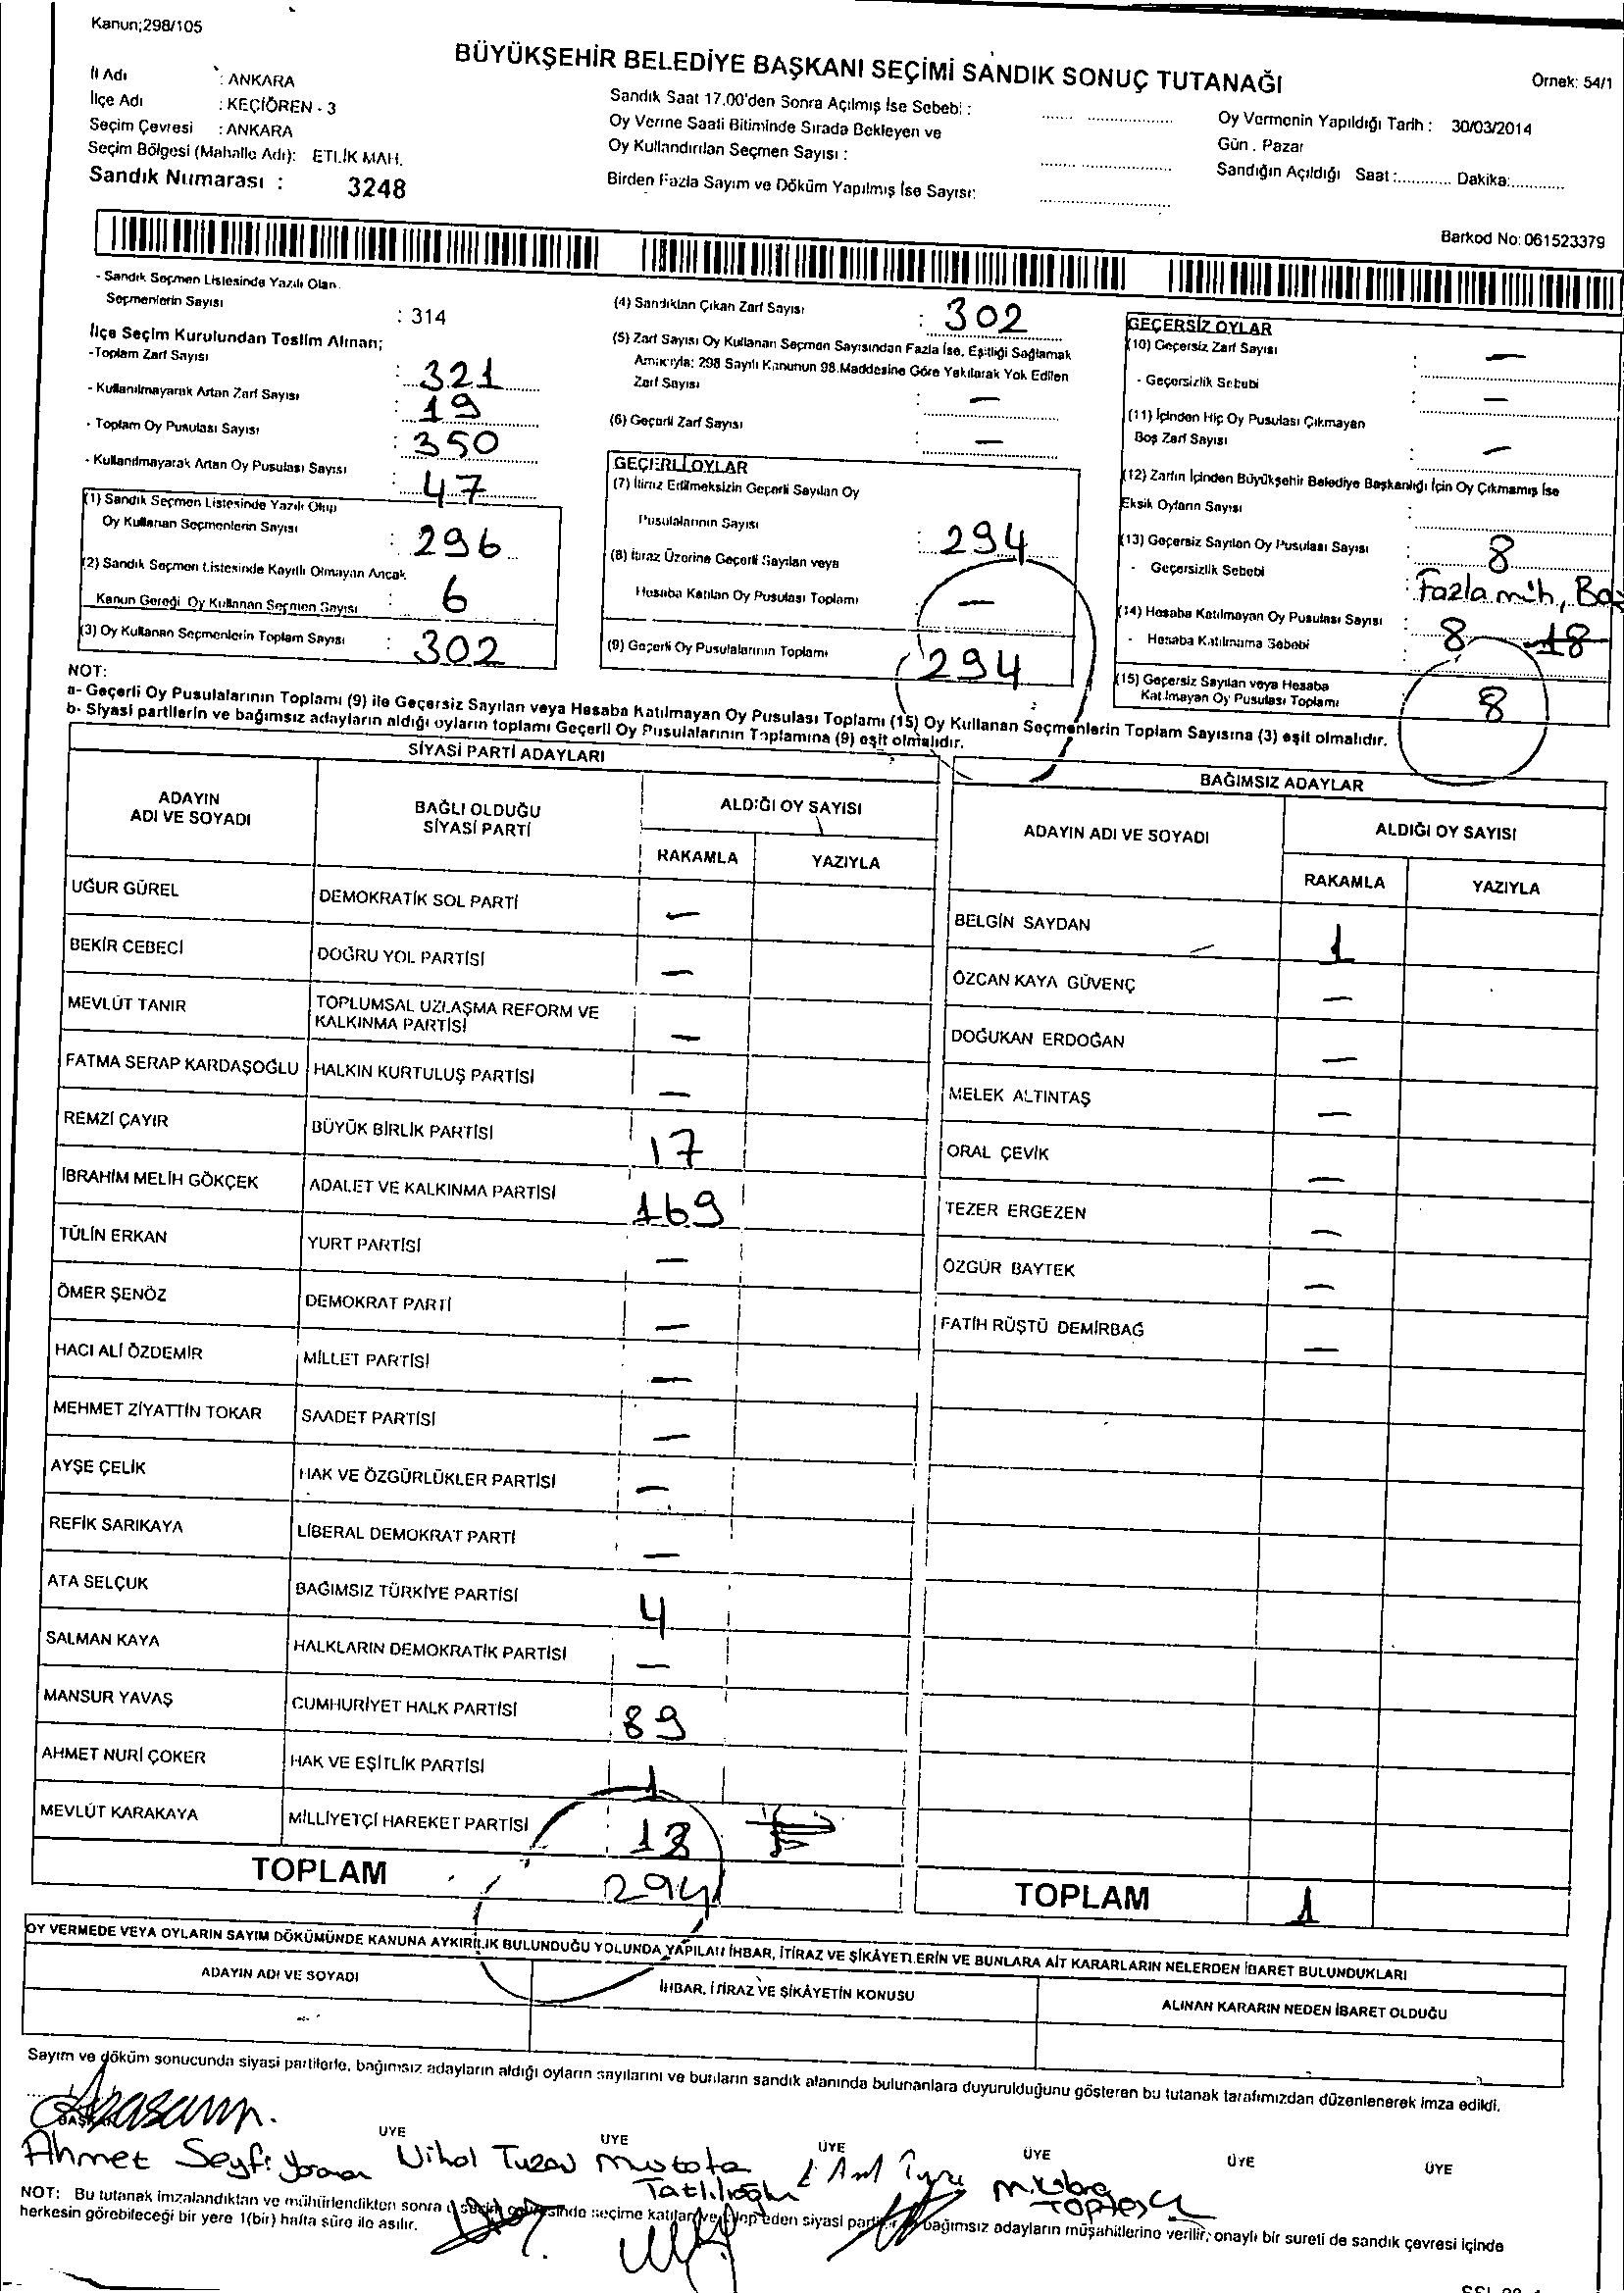 Kanun;298/105
BÜYÜKŞEHİR BELEDİYE BAŞKANI SEÇİMİ SANDIK SONUÇ TUTANAĞI
Örnek: 54/1
İl Adı : ANKARA
İlçe Adı : KEÇİÖREN - 3
Seçim Çevresi : ANKARA
Seçim Bölgesi (Mahalle Adı): ETLİK MAH.
Sandık Numarası : 3248
Sandık Saat 17.00'den Sonra Açılmış İse Sebebi :
Oy Verme Saati Bitiminde Sırada Bekleyen ve
Oy Kullandırılan Seçmen Sayısı :
Birden Fazla Sayım ve Döküm Yapılmış İse Sayısı:
Oy Vermenin Yapıldığı Tarih : 30/03/2014
Gün . Pazar
Sandığın Açıldığı Saat :............ Dakika:............
Barkod No: 061523379
- Sandık Seçmen Listesinde Yazılı Olan
Seçmenlerin Sayısı : 314
İlçe Seçim Kurulundan Teslim Alınan;
-Toplam Zarf Sayısı : 321
- Kullanılmayarak Artan Zarf Sayısı : 19
- Toplam Oy Pusulası Sayısı : 350
- Kullanılmayarak Artan Oy Pusulası Sayısı : 47
(1) Sandık Seçmen Listesinde Yazılı Olup
Oy Kullanan Seçmenlerin Sayısı : 296
(2) Sandık Seçmen Listesinde Kayıtlı Olmayan Ancak
Kanun Gereği Oy Kullanan Seçmen Sayısı : 6
(3) Oy Kullanan Seçmenlerin Toplam Sayısı : 302
(4) Sandıktan Çıkan Zarf Sayısı : 302
(5) Zarf Sayısı Oy Kullanan Seçmen Sayısından Fazla İse, Eşitliği Sağlamak
Amacıyla: 298 Sayılı Kanunun 98.Maddesine Göre Yakılarak Yok Edilen
Zarf Sayısı : —
(6) Geçerli Zarf Sayısı : —
GEÇERLİ OYLAR
(7) İtiraz Edilmeksizin Geçerli Sayılan Oy
Pusulalarının Sayısı : 294
(8) İtiraz Üzerine Geçerli Sayılan veya
Hesaba Katılan Oy Pusulası Toplamı —
(9) Geçerli Oy Pusulalarının Toplamı 294
GEÇERSİZ OYLAR
(10) Geçersiz Zarf Sayısı : —
- Geçersizlik Sebebi : —
(11) İçinden Hiç Oy Pusulası Çıkmayan
Boş Zarf Sayısı : —
(12) Zarfın İçinden Büyükşehir Belediye Başkanlığı İçin Oy Çıkmamış İse
Eksik Oyların Sayısı :
(13) Geçersiz Sayılan Oy Pusulası Sayısı : 8
- Geçersizlik Sebebi : Fazla müh,
(14) Hesaba Katılmayan Oy Pusulası Sayısı : 8 18
- Hesaba Katılmama Sebebi :
(15) Geçersiz Sayılan veya Hesaba
Katılmayan Oy Pusulası Toplamı 8
NOT:
a- Geçerli Oy Pusulalarının Toplamı (9) ile Geçersiz Sayılan veya Hesaba Katılmayan Oy Pusulası Toplamı (15) Oy Kullanan Seçmenlerin Toplam Sayısına (3) eşit olmalıdır.
b- Siyasi partilerin ve bağımsız adayların aldığı oyların toplamı Geçerli Oy Pusulalarının Toplamına (9) eşit olmalıdır.
SİYASİ PARTİ ADAYLARI
ADAYIN ADI VE SOYADI BAĞLI OLDUĞU SİYASİ PARTİ ALDIĞI OY SAYISI
RAKAMLA YAZIYLA
UĞUR GÜREL DEMOKRATİK SOL PARTİ —
BEKİR CEBECİ DOĞRU YOL PARTİSİ —
MEVLÜT TANIR TOPLUMSAL UZLAŞMA REFORM VE KALKINMA PARTİSİ —
FATMA SERAP KARDAŞOĞLU HALKIN KURTULUŞ PARTİSİ —
REMZİ ÇAYIR BÜYÜK BİRLİK PARTİSİ 17
İBRAHİM MELİH GÖKÇEK ADALET VE KALKINMA PARTİSİ 169
TÜLİN ERKAN YURT PARTİSİ —
ÖMER ŞENÖZ DEMOKRAT PARTİ —
HACI ALİ ÖZDEMİR MİLLET PARTİSİ —
MEHMET ZİYATTİN TOKAR SAADET PARTİSİ —
AYŞE ÇELİK HAK VE ÖZGÜRLÜKLER PARTİSİ —
REFİK SARIKAYA LİBERAL DEMOKRAT PARTİ —
ATA SELÇUK BAĞIMSIZ TÜRKİYE PARTİSİ 4
SALMAN KAYA HALKLARIN DEMOKRATİK PARTİSİ —
MANSUR YAVAŞ CUMHURİYET HALK PARTİSİ 89
AHMET NURİ ÇOKER HAK VE EŞİTLİK PARTİSİ 1
MEVLÜT KARAKAYA MİLLİYETÇİ HAREKET PARTİSİ 13
TOPLAM 294
BAĞIMSIZ ADAYLAR
ADAYIN ADI VE SOYADI ALDIĞI OY SAYISI
RAKAMLA YAZIYLA
BELGİN SAYDAN 1
ÖZCAN KAYA GÜVENÇ —
DOĞUKAN ERDOĞAN —
MELEK ALTINTAŞ —
ORAL ÇEVİK —
TEZER ERGEZEN —
ÖZGÜR BAYTEK —
FATİH RÜŞTÜ DEMİRBAĞ —
TOPLAM 1
OY VERMEDE VEYA OYLARIN SAYIM DÖKÜMÜNDE KANUNA AYKIRILIK BULUNDUĞU YOLUNDA YAPILAN İHBAR, İTİRAZ VE ŞİKÂYETLERİN VE BUNLARA AİT KARARLARIN NELERDEN İBARET BULUNDUKLARI
ADAYIN ADI VE SOYADI İHBAR, İTİRAZ VE ŞİKÂYETİN KONUSU ALINAN KARARIN NEDEN İBARET OLDUĞU
Sayım ve döküm sonucunda siyasi partilerle, bağımsız adayların aldığı oyların sayılarını ve bunların sandık alanında bulunanlara duyurulduğunu gösteren bu tutanak tarafımızdan düzenlenerek imza edildi.
BAŞKAN ÜYE ÜYE ÜYE ÜYE ÜYE ÜYE
Ahmet Seyfi Nihal Mustafa
Tatlılıoğlu
NOT: Bu tutanak imzalandıktan ve mühürlendikten sonra seçime katılan ve eden siyasi bağımsız adayların müşahitlerine verilir; onaylı bir sureti de sandık çevresi içinde
herkesin görebileceği bir yere 1(bir) hafta süre ile asılır.